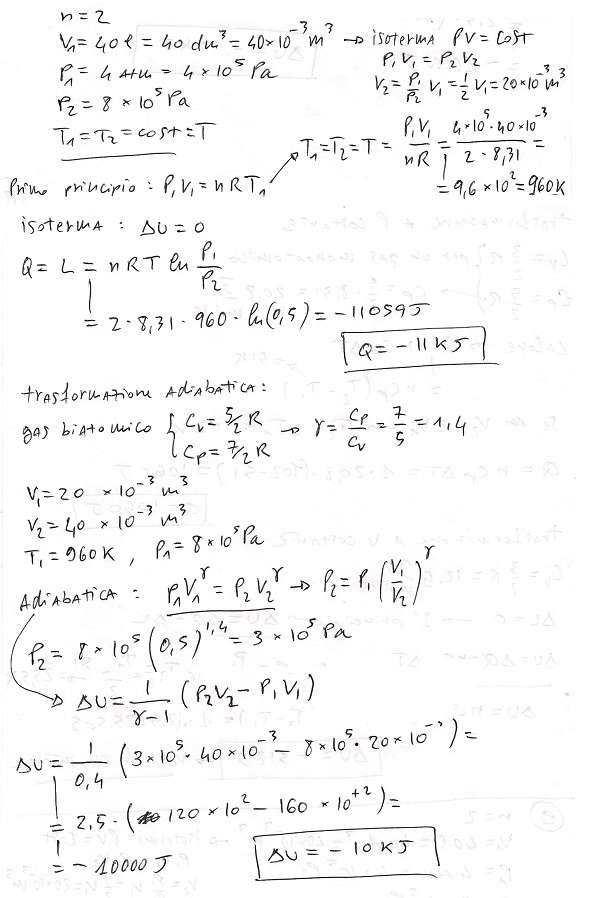 n = 2
V₁ = 40 l = 40 dm³ = 40×10⁻³ m³ → isoterma PV = cost
P₁V₁ = P₂V₂
P₁ = 4 Atm = 4×10⁵ Pa
V₂ = P₁/P₂ V₁ = 1/2 V₁ = 20×10⁻³ m³
P₂ = 8×10⁵ Pa
T₁ = T₂ = cost = T
T₁ = T₂ = T = P₁V₁/nR = 4×10⁵·40×10⁻³/2·8,31 =
= 9,6×10² = 960K
Primo principio: P₁V₁ = nRT₁
isoterma: ΔU = 0
Q = L = nRT ln P₁/P₂
= 2·8,31·960·ln(0,5) = -11059J
Q = -11KJ
trasformazione Adiabatica:
gas biatomico { Cv = 5/2 R
Cp = 7/2 R → γ = Cp/Cv = 7/5 = 1,4
V₁ = 20 ×10⁻³ m³
V₂ = 40 ×10⁻³ m³
T₁ = 960K, P₁ = 8×10⁵ Pa
Adiabatica: P₁V₁^γ = P₂V₂^γ → P₂ = P₁(V₁/V₂)^γ
P₂ = 8×10⁵(0,5)^1,4 = 3×10⁵ Pa
→ ΔU = 1/γ-1 (P₂V₂ - P₁V₁)
ΔU = 1/0,4 (3×10⁵·40×10⁻³ - 8×10⁵·20×10⁻³) =
= 2,5·(120×10² - 160×10⁺²) =
= -10000 J
ΔU = -10KJ